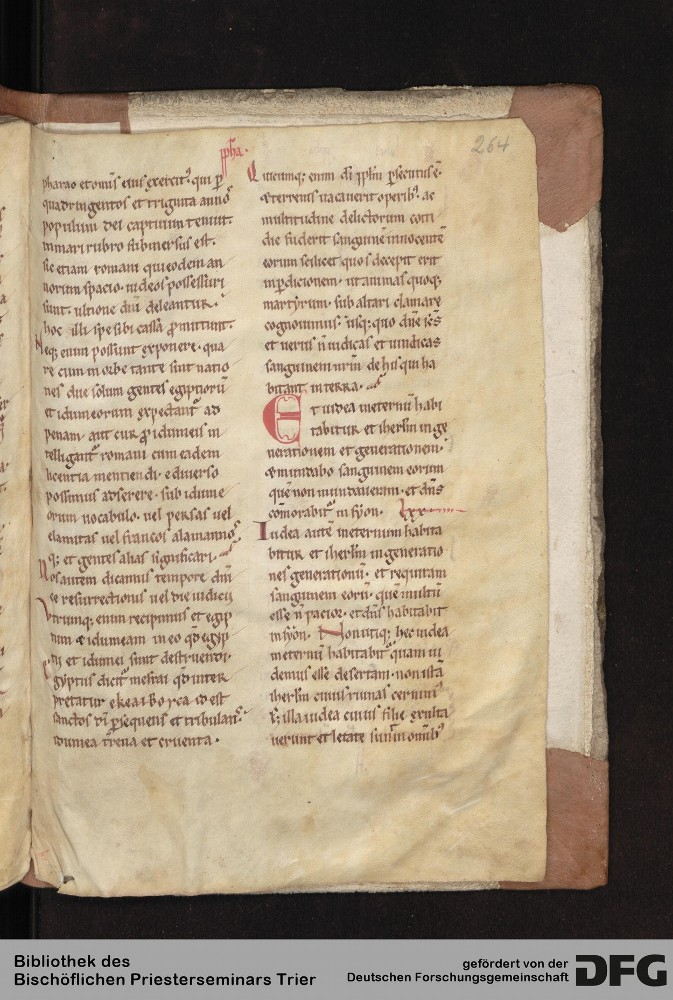 ppha.
264
pharao et omīs eius exercit᷒. qui p̄
quadringentos et triginta annos
populum dei captiuum tenuit.
in mari rubro submersus est.
sic etiam romani qui eodem an
norum spacio. iudeos possessuri
sunt. ultione dn̄i deleantur.
hoc illi spe sibi cassa promittunt.
Neq; enim possunt exponere. qua
re cum in orbe tante sint natio
nes due solum gentes egiptiorū
et idumeorum expectant᷒ ad
penam. aut cur p idumeis in
telligant᷒ romani cum eadem
licentia mentiendi. e diuerso
possimus adserere. sub idume
orum uocabulo. uel persas uel
elamitas uel francos alamannos
q; et gentes alias significari.
Nos autem dicamus tempore dn̄i
ce resurrectionis uel die iudicii
Vtrumq; enim recipimus et egip
tum & idumeam in eo qd̄ egyp
tii et idumei sunt destruendi.
Egyptus dicit᷒ mesrai qd̄ inter
pretatur id est
sanctos di persequens et tribulans.
idumea t̄rena et cruenta.
Quicumq; enim di pplm persecutus ē.
& terrenis uacauerit operib᷒. ac
multitudine delictorum coti
die fuderit sanguinē innocentē
eorum scilicet quos decepit erit
in perdicionem. ut animas quoq;
martyrum. sub altari clamare
cognouimus. usq; quo dn̄e sc̄s
et uerus n̄ iudicas et uindicas
sanguinem nrm̄. de his qui ha
bitant in terra.
Et iudea in eternū habi
tabitur et ihrlm in ge
nerationem et generationem.
& mundabo sanguinem eorum
quē non mundaueram. et dn̄s
cōmorabit᷒ in syon. lxx.
Iudea autē in eternum habita
bitur et iherlm in generatio
nes generationū. et requiram
sanguinem eorū. quē inultū
esse n̄ pacior. et dn̄s habitabit
in syon. Non utiq; hec iudea
in eternū habitabit᷒ quam ui
demus esse desertam. non istā
iherlm cuius ruinas cernim᷒
S; illa iudea cuius filie exulta
uerunt et letate sunt in omib᷒
Bibliothek des
Bischöflichen Priesterseminars Trier
gefördert von der
Deutschen Forschungsgemeinschaft
DFG